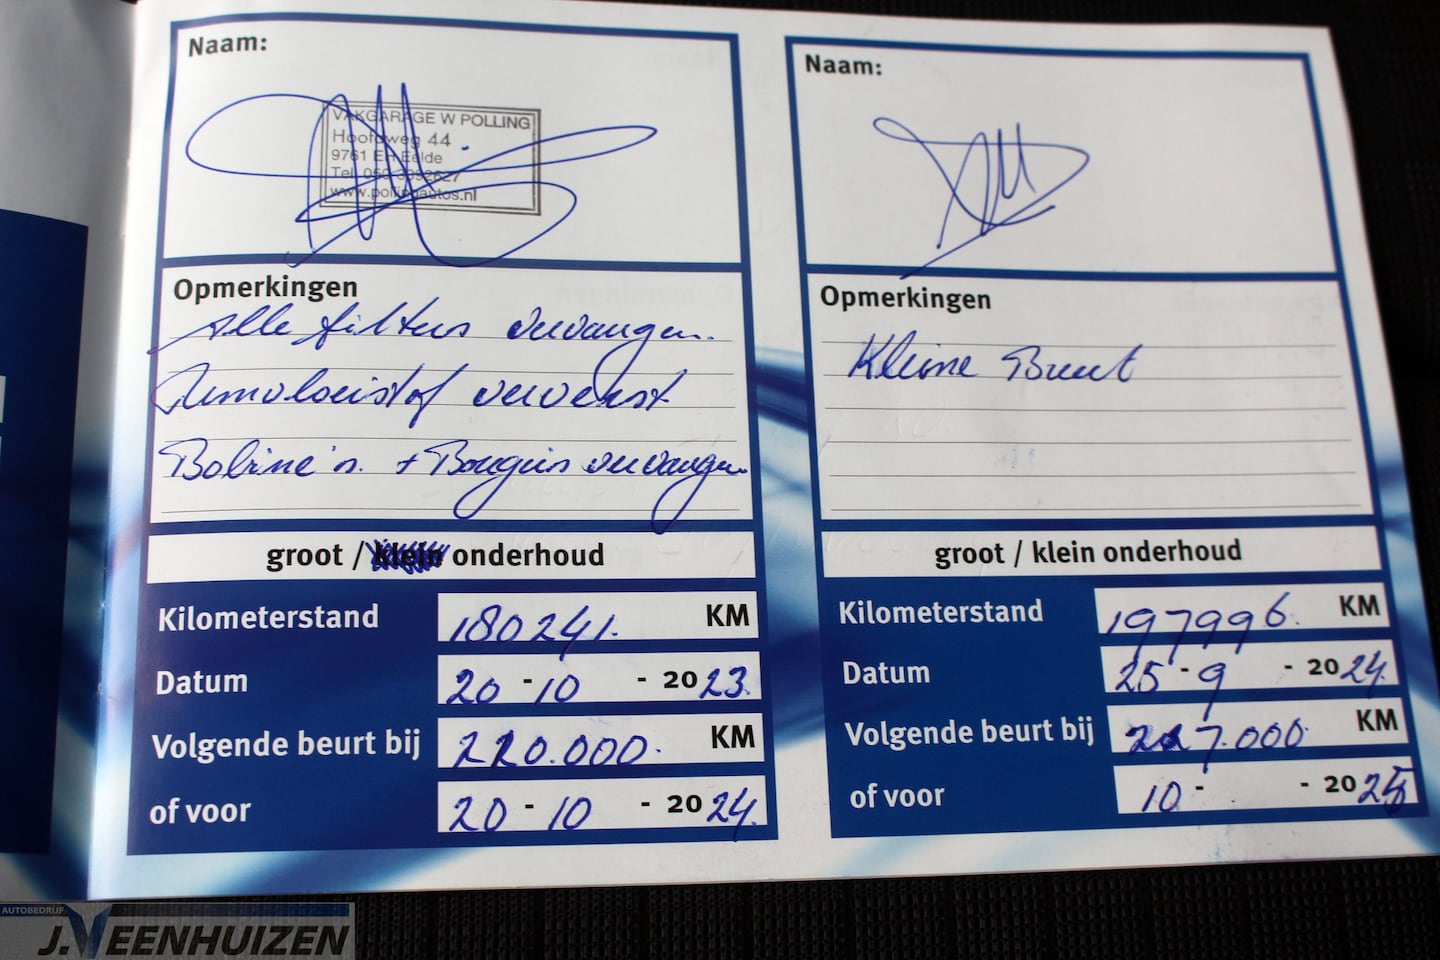 Naam:
VAKGARAGE W POLLING
Hoofdweg 44
9761 EH Eelde
Tel. 050 3092627
www.pollingautos.nl
Opmerkingen
Alle filters vervangen.
Remvloeistof ververst
Bobine's. + Bougies vervangen
groot / klein onderhoud
Kilometerstand 180241. KM
Datum 20 - 10 - 2023.
Volgende beurt bij 220.000. KM
of voor 20 - 10 - 2024.
Naam:
Opmerkingen
Kleine Beurt
groot / klein onderhoud
Kilometerstand 197996. KM
Datum 25 - 9 - 2024.
Volgende beurt bij 227.000 KM
of voor 10 - - 2025
AUTOBEDRIJF
J. VEENHUIZEN